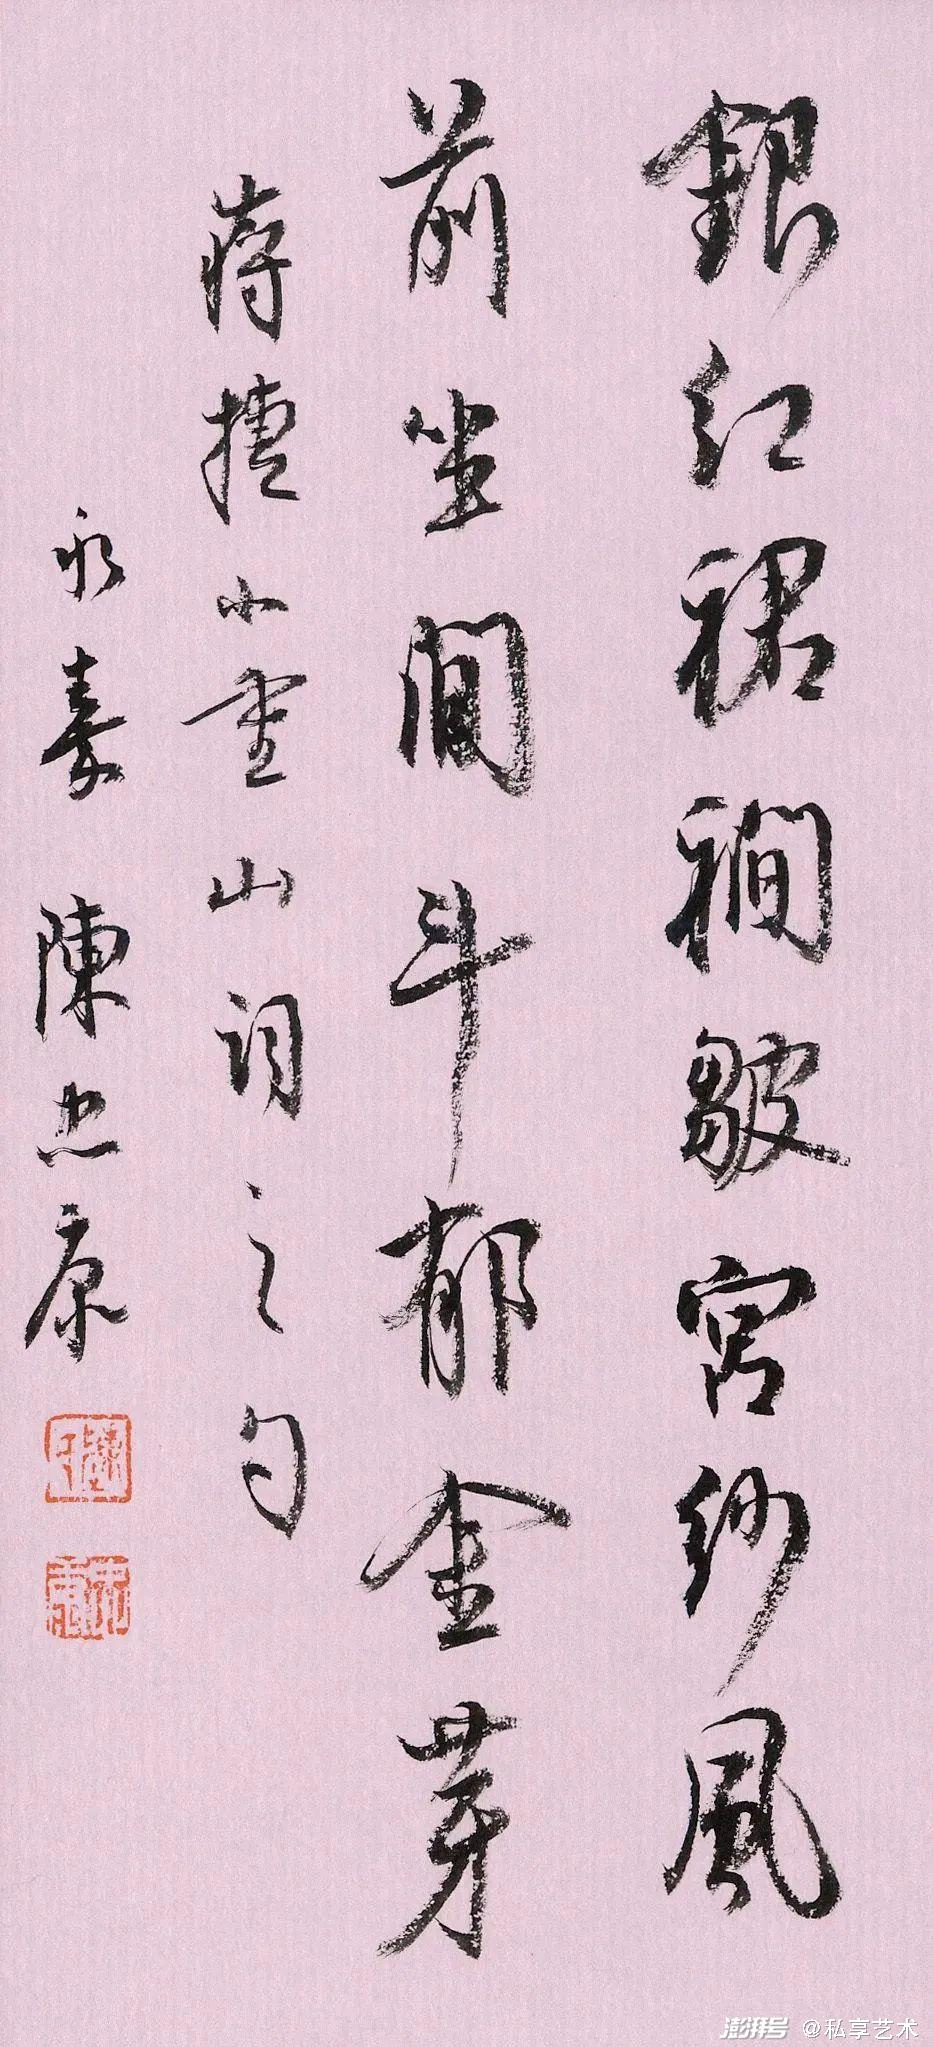 銀紅裙襇皺宮紗風
前坐閒斗郁金芽
蔣捷小重山詞之句
永嘉 陳忠康
澎湃号 @私享艺术